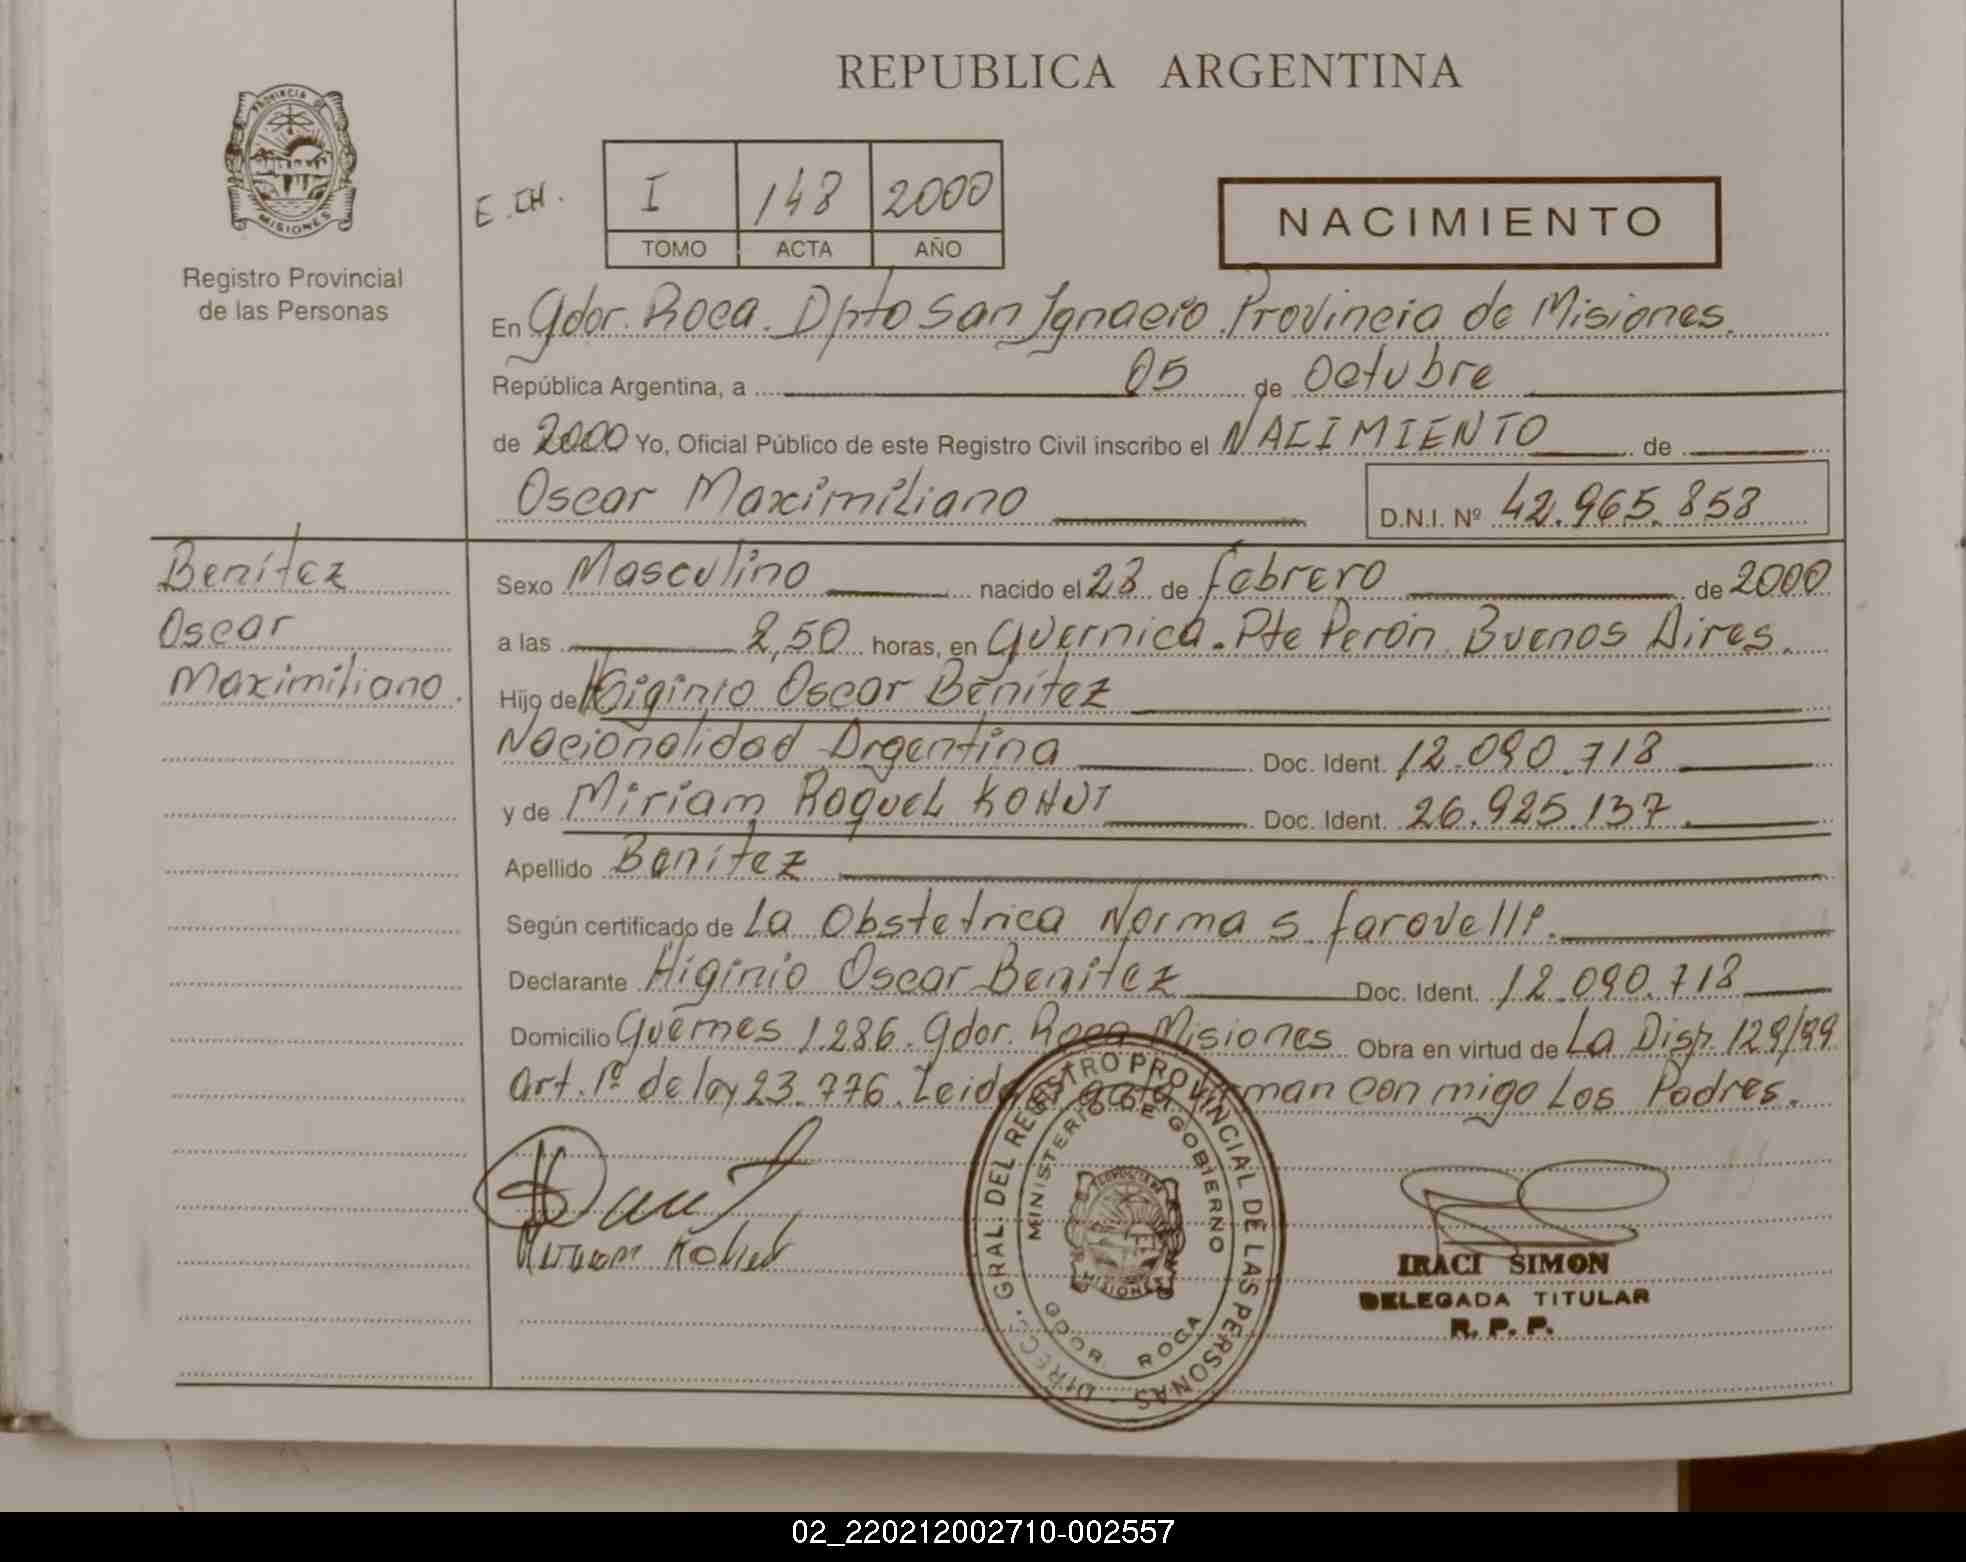 REPUBLICA ARGENTINA
PROVINCIA DE
MISIONES
Registro Provincial
de las Personas
E. CH.
I 148 2000
TOMO ACTA AÑO
NACIMIENTO
En Gdor. Roca. Dpto San Ignacio. Provincia de Misiones.
República Argentina, a 05 de Octubre
de 2000 Yo, Oficial Público de este Registro Civil inscribo el NACIMIENTO de
Oscar Maximiliano D.N.I. Nº 42.965.858
Benítez
Oscar
Maximiliano.
Sexo Masculino nacido el 23 de febrero de 2000
a las 2,50 horas, en Guernica. Pte Perón. Buenos Aires.
Hijo de Higinio Oscar Benítez
Nacionalidad Argentina Doc. Ident. 12.090.718
y de Miriam Raquel KOHUT Doc. Ident. 26.925.137.
Apellido Benítez
Según certificado de La Obstetrica Norma S. Farovelli.
Declarante Higinio Oscar Benítez Doc. Ident. 12.090.718
Domicilio Guemes 1.286. Gdor. Roca Misiones Obra en virtud de La Disp. 129/99
art. 1º de ley 23.776. Leida acta firman con migo Los Padres.
Miriam Kohut
DIRECC. GRAL. DEL REGISTRO PROVINCIAL DE LAS PERSONAS
MINISTERIO DE GOBIERNO
MISIONES
GDOR ROCA
IRACI SIMON
DELEGADA TITULAR
R. P. P.
02_220212002710-002557